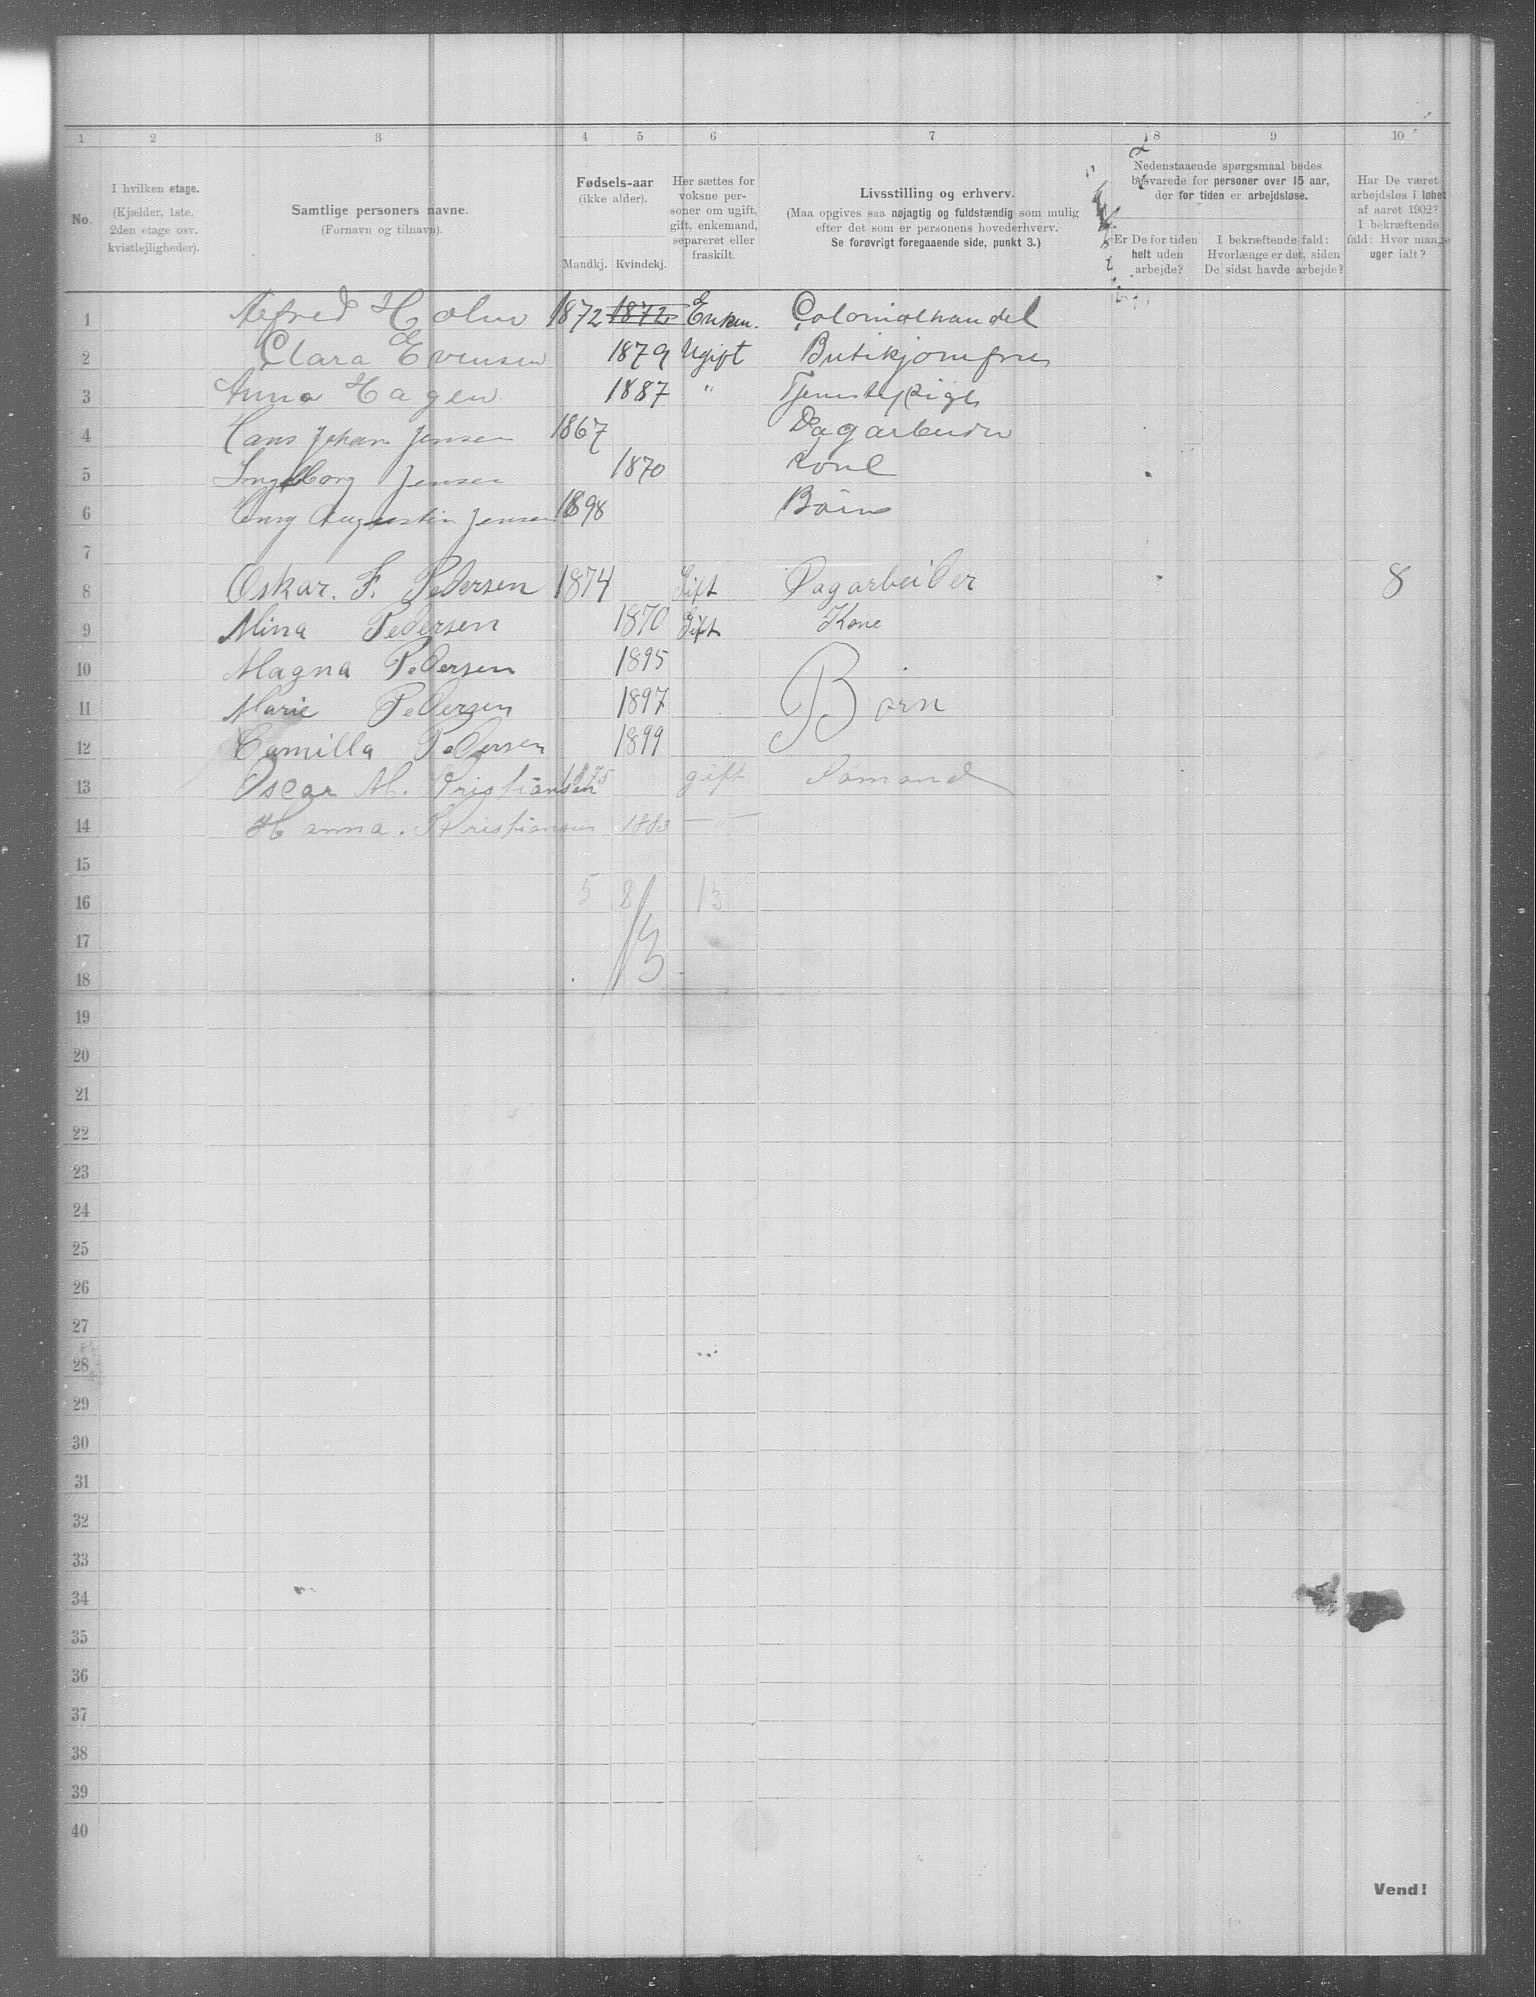 1 2 3 4 5 6 7 8 9 10
No.
I hvilken etage.
(Kjælder, 1ste,
2den etage osv.
kvistlejligheder).
Samtlige personers navne.
(Fornavn og tilnavn).
Fødsels-aar
(ikke alder).
Mandkj. Kvindekj.
Her sættes for
voksne per-
soner om ugift,
gift, enkemand,
separeret eller
fraskilt.
Livsstilling og erhverv.
(Maa opgives saa nøjagtig og fuldstændig som mulig
efter det som er personens hovederhverv.
Se forøvrigt foregaaende side, punkt 3.)
Nedenstaaende spørgsmaal bedes
besvarede for personer over 15 aar,
der for tiden er arbejdsløse.
Er De for tiden
helt uden
arbejde?
I bekræftende fald:
Hvorlænge er det, siden
De sidst havde arbejde?
Har De været
arbejdsløs i løbet
af aaret 1902?
I bekræftende
fald: Hvor mange
uger ialt?
1 Alfred Holm 1872 1872 Enkem. Colonialhandel
2 Clara Evensen 1879 Ugift Butikjomfru
3 Anna Hagen 1887 " Tjenestepige
4 Hans Johan Jensen 1867 Dagarbeider
5 Ingeborg Jensen 1870 Kone
6 Augustin Jensen 1898 Børn
7
8 Oskar. F. Pedersen 1874 Gift Dagarbeider 8
9 Mina Pedersen 1870 Gift Kone
10 Magna Pedersen 1895
11 Marie Pedersen 1897 Børn
12 Camilla Pedersen 1899
13 Oscar M. Kristiansen 1875 gift Sømand
14 Hanna. Kristiansen 1883
15
16 5 8 13
17
18
19
20
21
22
23
24
25
26
27
28
29
30
31
32
33
34
35
36
37
38
39
40
Vend!